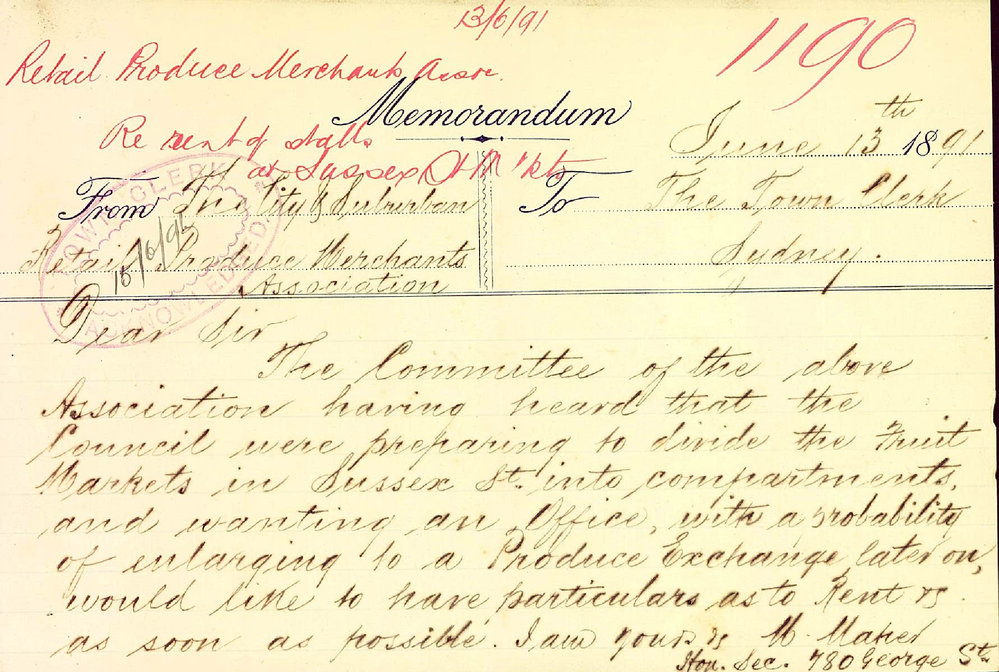 13/6/91
1190
Retail Produce Merchants Assoc.
Memorandum
Re rent of stalls
at Sussex St M'kts
June 13th 1891
From The City & Suburban
Retail Produce Merchants
Association
To The Town Clerk
Sydney.
TOWN CLERK
15/6/91
ACKNOWLEDGED.
Dear Sir
The Committee of the above
Association having heard that the
Council were preparing to divide the Fruit
Markets in Sussex St. into compartments,
and wanting an Office, with a probability
of enlarging to a Produce Exchange later on,
would like to have particulars as to Rent &c.
as soon as possible. I am yours &c M. Maher
Hon. Sec. 780 George St.